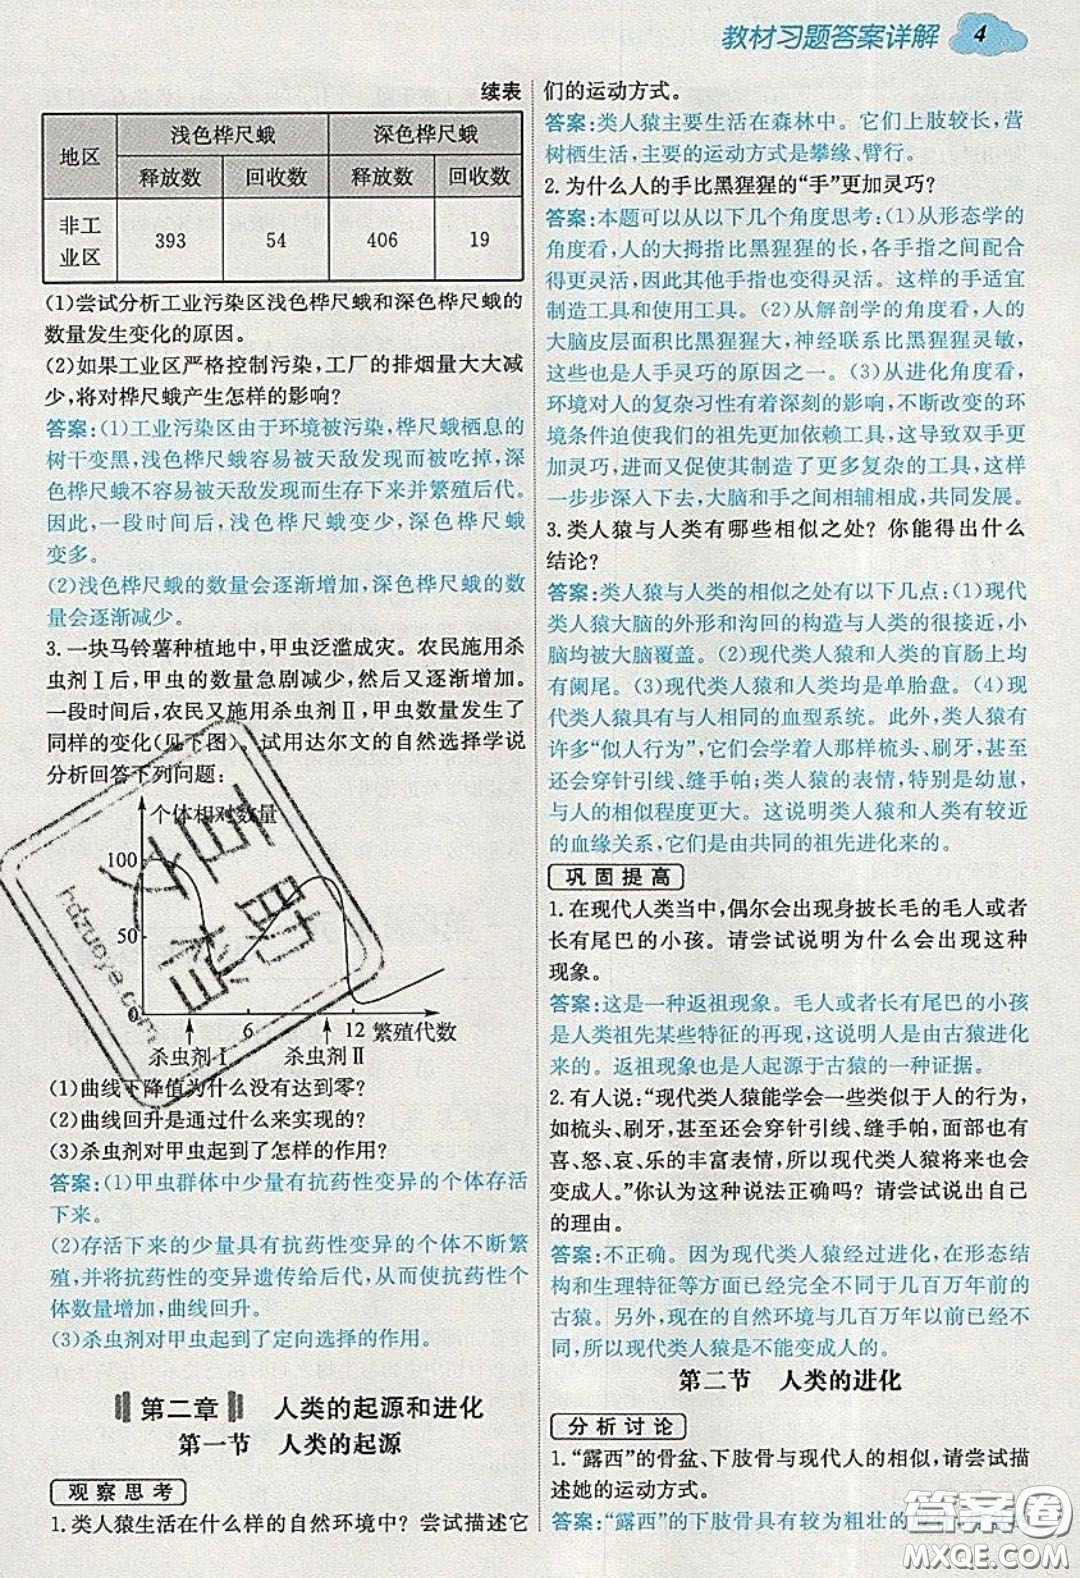 教材习题答案详解 4
续表
地区 浅色桦尺蛾 深色桦尺蛾
释放数 回收数 释放数 回收数
非工业区 393 54 406 19
(1)尝试分析工业污染区浅色桦尺蛾和深色桦尺蛾的
数量发生变化的原因。
(2)如果工业区严格控制污染,工厂的排烟量大大减
少,将对桦尺蛾产生怎样的影响?
答案:(1)工业污染区由于环境被污染,桦尺蛾栖息的
树干变黑,浅色桦尺蛾容易被天敌发现而被吃掉,深
色桦尺蛾不容易被天敌发现而生存下来并繁殖后代。
因此,一段时间后,浅色桦尺蛾变少,深色桦尺蛾
变多。
(2)浅色桦尺蛾的数量会逐渐增加,深色桦尺蛾的数
量会逐渐减少。
3. 一块马铃薯种植地中,甲虫泛滥成灾。农民施用杀
虫剂Ⅰ后,甲虫的数量急剧减少,然后又逐渐增加。
一段时间后,农民又施用杀虫剂Ⅱ,甲虫数量发生了
同样的变化(见下图)。试用达尔文的自然选择学说
分析回答下列问题:
个体相对数量
100
50
0 6 12 繁殖代数
杀虫剂Ⅰ 杀虫剂Ⅱ
(1)曲线下降值为什么没有达到零?
(2)曲线回升是通过什么来实现的?
(3)杀虫剂对甲虫起到了怎样的作用?
答案:(1)甲虫群体中少量有抗药性变异的个体存活
下来。
(2)存活下来的少量具有抗药性变异的个体不断繁
殖,并将抗药性的变异遗传给后代,从而使抗药性个
体数量增加,曲线回升。
(3)杀虫剂对甲虫起到了定向选择的作用。
第二章 人类的起源和进化
第一节 人类的起源
观察思考
1. 类人猿生活在什么样的自然环境中? 尝试描述它
们的运动方式。
答案:类人猿主要生活在森林中。它们上肢较长,营
树栖生活,主要的运动方式是攀缘、臂行。
2. 为什么人的手比黑猩猩的“手”更加灵巧?
答案:本题可以从以下几个角度思考:(1)从形态学的
角度看,人的大拇指比黑猩猩的长,各手指之间配合
得更灵活,因此其他手指也变得灵活。这样的手适宜
制造工具和使用工具。(2)从解剖学的角度看,人的
大脑皮层面积比黑猩猩大,神经联系比黑猩猩灵敏,
这些也是人手灵巧的原因之一。(3)从进化角度看,
环境对人的复杂习性有着深刻的影响,不断改变的环
境条件迫使我们的祖先更加依赖工具,这导致双手更
加灵巧,进而又促使其制造了更多复杂的工具,这样
一步步深入下去,大脑和手之间相辅相成,共同发展。
3. 类人猿与人类有哪些相似之处? 你能得出什么
结论?
答案:类人猿与人类的相似之处有以下几点:(1)现代
类人猿大脑的外形和沟回的构造与人类的很接近,小
脑均被大脑覆盖。(2)现代类人猿和人类的盲肠上均
有阑尾。(3)现代类人猿和人类均是单胎盘。(4)现
代类人猿具有与人相同的血型系统。此外,类人猿有
许多“似人行为”,它们会学着人那样梳头、刷牙,甚至
还会穿针引线、缝手帕;类人猿的表情,特别是幼崽,
与人的相似程度更大。这说明类人猿和人类有较近
的血缘关系,它们是由共同的祖先进化来的。
巩固提高
1. 在现代人类当中,偶尔会出现身披长毛的毛人或者
长有尾巴的小孩。请尝试说明为什么会出现这种
现象。
答案:这是一种返祖现象。毛人或者长有尾巴的小孩
是人类祖先某些特征的再现,这说明人是由古猿进化
来的。返祖现象也是人起源于古猿的一种证据。
2. 有人说:“现代类人猿能学会一些类似于人的行为,
如梳头、刷牙,甚至还会穿针引线、缝手帕,面部也有
喜、怒、哀、乐的丰富表情,所以现代类人猿将来也会
变成人。”你认为这种说法正确吗? 请尝试说出自己
的理由。
答案:不正确。因为现代类人猿经过进化,在形态结
构和生理特征等方面已经完全不同于几百万年前的
古猿。另外,现在的自然环境与几百万年以前已经不
同,所以现代类人猿是不能变成人的。
第二节 人类的进化
分析讨论
1. “露西”的骨盆、下肢骨与现代人的相似,请尝试描
述她的运动方式。
答案:“露西”的下肢骨具有较为粗壮的
答案圈
MXQE.COM
作业答案
hdzuoye.com